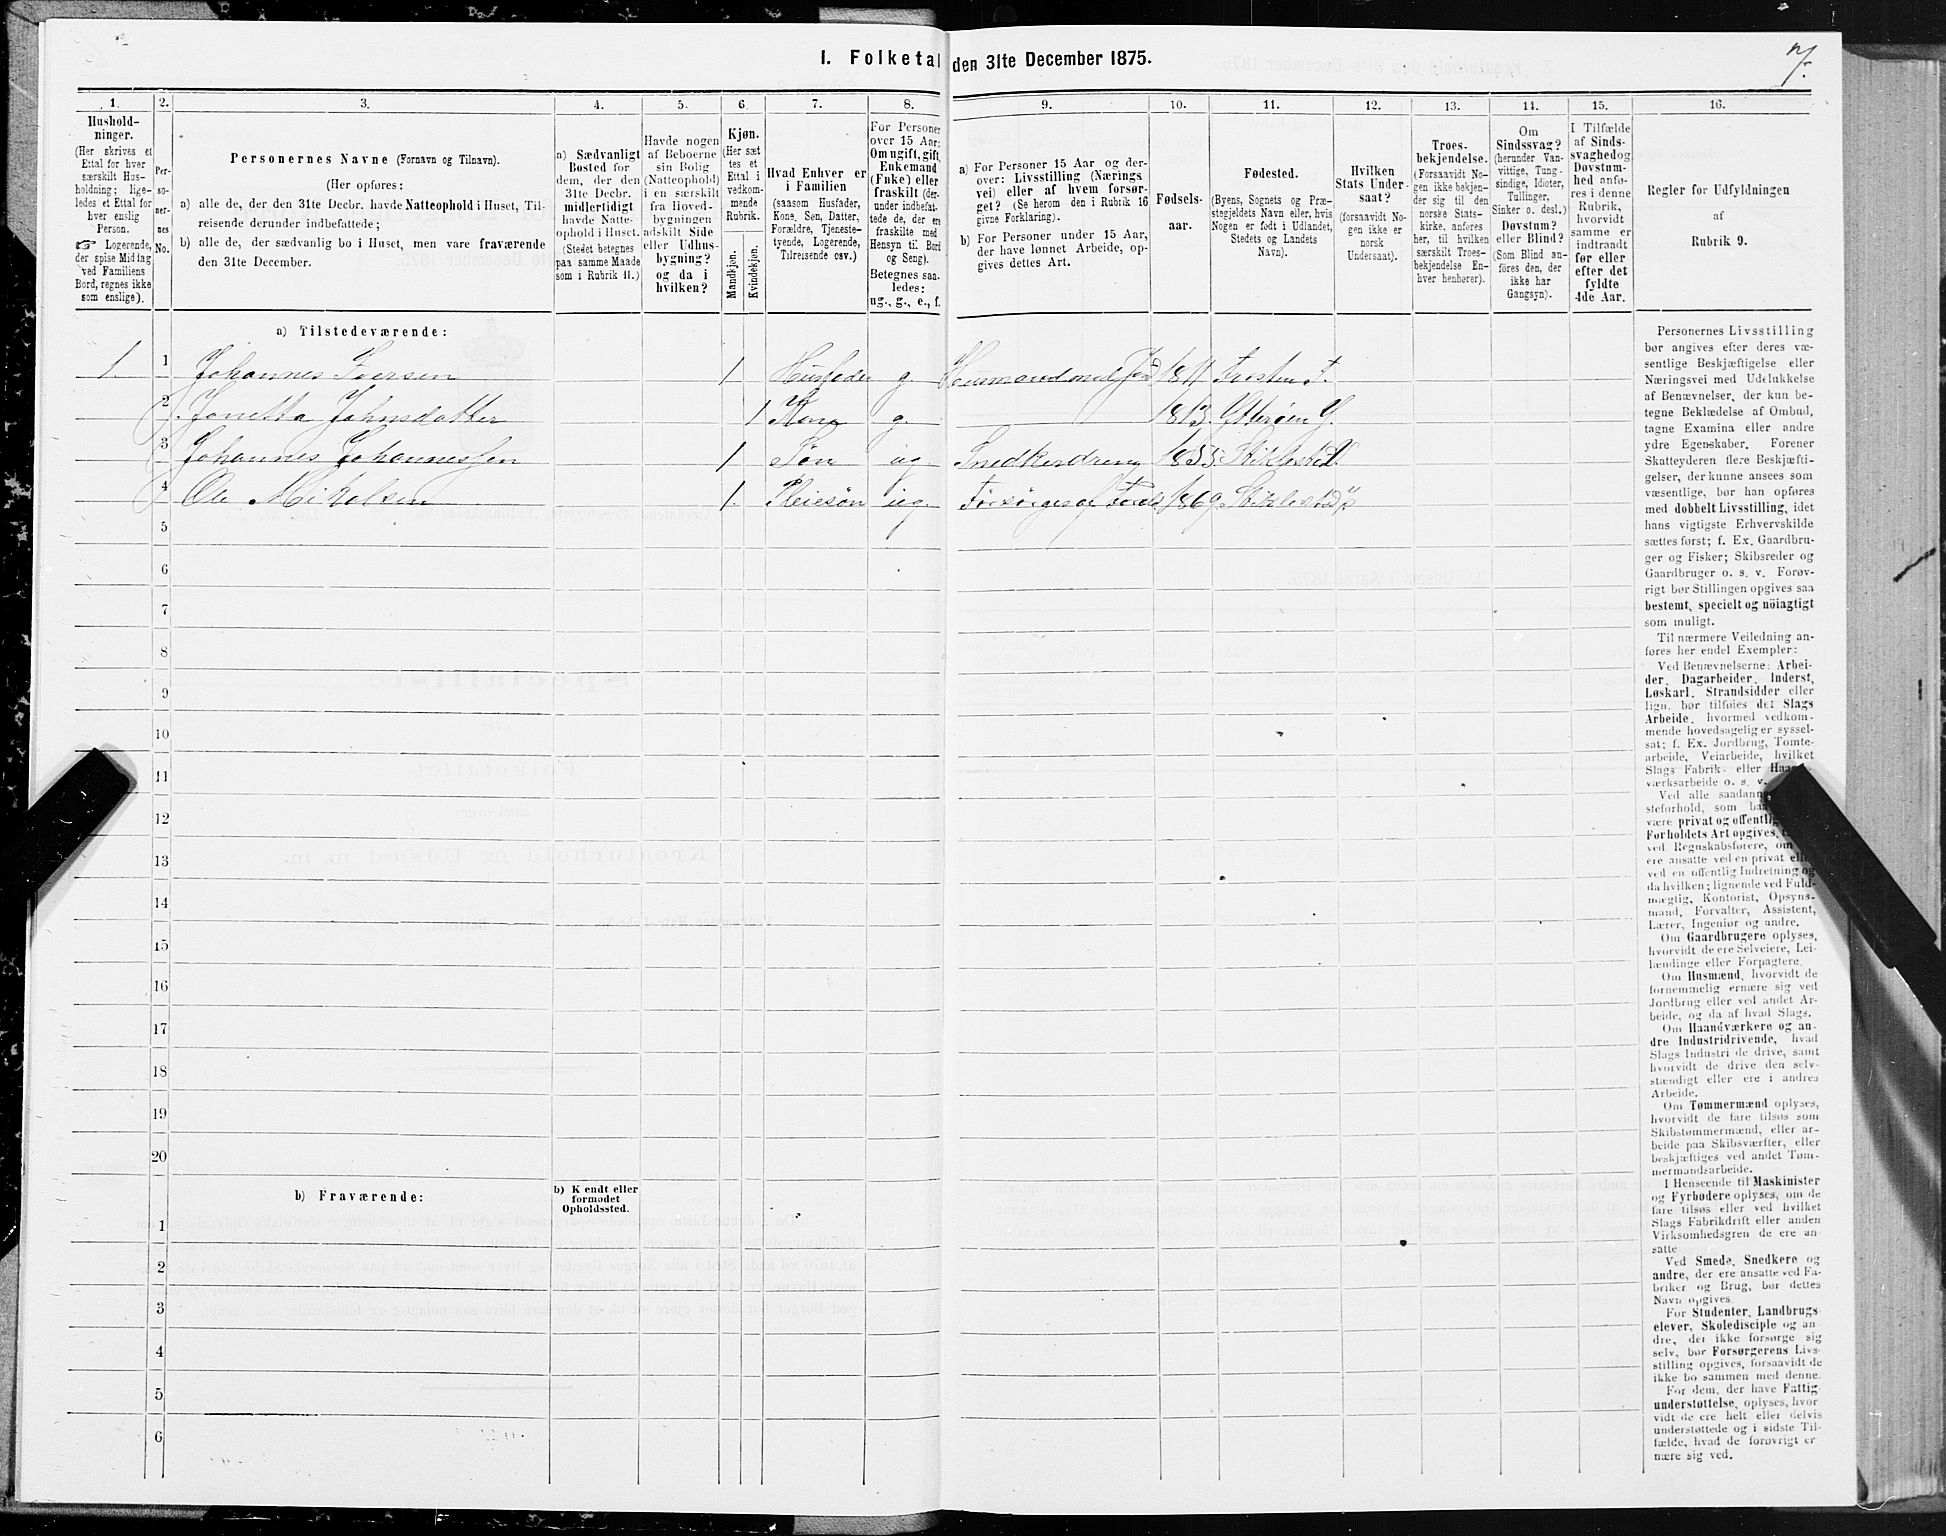 I. Folketal den 31te December 1875.
7.
1.
Husholdninger.
(Her skrives et
Ettal for hver
særskilt Husholdning;
ligeledes et Ettal for
hver enslig
Person.
☞ Logerende,
der spise Middag
ved Familiens
Bord, regnes ikke
som enslige).
2.
Personernes
No.
3.
Personernes Navne (Fornavn og Tilnavn).
(Her opføres:
a) alle de, der den 31te Decbr. havde Natteophold i Huset, Tilreisende derunder indbefattede;
b) alle de, der sædvanlig bo i Huset, men vare fraværende
den 31te December.
4.
a) Sædvanligt
Bosted for
dem, der den
31te Decbr.
midlertidigt
havde Natteophold i Huset.
(Stedet betegnes
paa samme Maade
som i Rubrik 11.)
5.
Havde nogen
af Beboerne
sin Bolig
(Natteophold)
i en særskilt
fra Hovedbygningen
adskilt Side
eller Udhusbygning?
og da i
hvilken?
6.
Kjøn.
(Her sættes et
Ettal i
vedkommende
Rubrik.
Mandkjøn.
Kvindekjøn.
7.
Hvad Enhver er
i Familien
(saasom Husfader,
Kone, Søn, Datter,
Forældre, Tjenestetyende, Logerende,
Tilreisende osv.)
8.
For Personer
over 15 Aar:
Om ugift, gift,
Enkemand
(Enke) eller
fraskilt (derunder indbefattede de, der ere
fraskilte med
Hensyn til Bord
og Seng).
Betegnes saaledes:
ug., g., e., f.
9.
a) For Personer 15 Aar og derover: Livsstilling (Næringsvei) eller af hvem forsørget? (Se herom den i Rubrik 16
givne Forklaring).
b) For Personer under 15 Aar,
der have lønnet Arbeide, opgives dettes Art.
10.
Fødselsaar.
11.
Fødested.
(Byens, Sognets og Præstegjeldets Navn eller, hvis
Nogen er født i Udlandet,
Stedets og Landets
Navn).
12.
Hvilken
Stats Undersaat?
(forsaavidt Nogen ikke er
norsk
Undersaat).
13.
Troesbekjendelse.
(Forsaavidt Nogen ikke bekjender sig til den
norske Statskirke, anføres
her, til hvilken
særskilt Troesbekjendelse Enhver henhører).
14.
Om
Sindssvag?
(herunder Vanvittige, Tungsindige, Idioter,
Tullinger,
Sinker o. desl.)
Døvstum?
eller Blind?
(Som Blind anføres den, der
ikke har
Gangsyn).
15.
I Tilfælde
af Sindssvaghed og
Døvstumhed anføres i denne
Rubrik,
hvorvidt
samme er
indtraadt
før eller
efter det
fyldte
4de Aar.
16.
Regler for Udfyldningen
af
Rubrik 9.
a) Tilstedeværende:
1. 1 Johannes Iversen 1 Husfader g. Husmand med Jord 1811 Frosten F.
2 Jonetta Johnsdatter 1 Kone g. 1813. Ytterøen Y.
3 Johannes Johannessen 1 Søn ug. Snedkerdreng 1855 Stiklestad V.
4 Ole Mikalsen 1. Pleiesøn ug. Forsørges af 1869. Stiklestad
5
6
7
8
9
10
11
12
13
14
15
16
17
18
19
20
b) Fraværende:
b) Kjendt eller
formodet
Opholdssted.
1
2
3
4
5
6
Personernes Livsstilling
bør angives efter deres væsentlige Beskjæftigelse eller
Næringsvei med Udelukkelse
af Benævnelser, der kun betegne Beklædelse af Ombud,
tagne Examina eller andre
ydre Egenskaber. Forener
Skatteyderen flere Beskjæftigelser, der kunne ansees som
væsentlige, bør han opføres
med dobbelt Livsstilling, idet
hans vigtigste Erhvervskilde
sættes først; f. Ex. Gaardbruger og Fisker; Skibsreder og
Gaardbruger o. s. v. Forøvrigt bør Stillingen opgives saa
bestemt, specielt og nöiagtigt
som muligt.
Til nærmere Veiledning anføres her endel Exempler:
Ved Benævnelserne: Arbeider, Dagarbeider, Inderst,
Løskarl, Strandsidder eller
lign. bør tilføies det Slags
Arbeide, hvormed vedkommende hovedsagelig er sysselsat; f. Ex. Jordbrug, Tomtearbeide, Veiarbeide, hvilket
Slags Fabrik- eller
værksarbeide o. s. v.
Ved alle
være privat og
Forholdets Art opgives,
ved Regnskabsførere,
ere ansatte ved en privat
ved en offentlig Indretning og
da hvilken; lignende ved Fuldmægtig, Kontorist, Opsynsmand, Forvalter, Assistent,
Lærer, Ingeniør og andre.
Om Gaardbrugere oplyses,
hvorvidt de ere Selveiere, Leilændinge eller Forpagtere.
Om Husmænd, hvorvidt de
fornemmelig ernære sig ved
Jordbrug eller ved andet Arbeide, og da af hvad Slags.
Om Haandværkere og andre Industridrivende, hvad
Slags Industri de drive, samt
hvorvidt de drive den selvstændigt eller ere i andres
Arbeide.
Om Tømmermænd oplyses,
hvorvidt de fare tilsøs som
Skibstømmermænd, eller arbeide paa Skibsværfter, eller
beskjæftiges ved andet Tømmermandsarbeide.
I Henseende til Maskinister
og Fyrbødere oplyses, om de
fare tilsøs eller ved hvilket
Slags Fabrikdrift eller anden
Virksomhedsgren de ere ansatte.
Ved Smede, Snedkere og
andre, der ere ansatte ved Fabriker og Brug, bør dettes
Navn opgives.
For Studenter, Landbrugselever, Skoledisciple og andre, der ikke forsørge sig
selv, bør Forsørgerens Livsstilling opgives, forsaavidt de
ikke bo sammen med denne.
For dem, der have Fattigunderstøttelse, oplyses, hvorvidt de ere helt eller delvis
understøttede og i sidste Tilfælde, hvad de forøvrigt ernære sig ved.